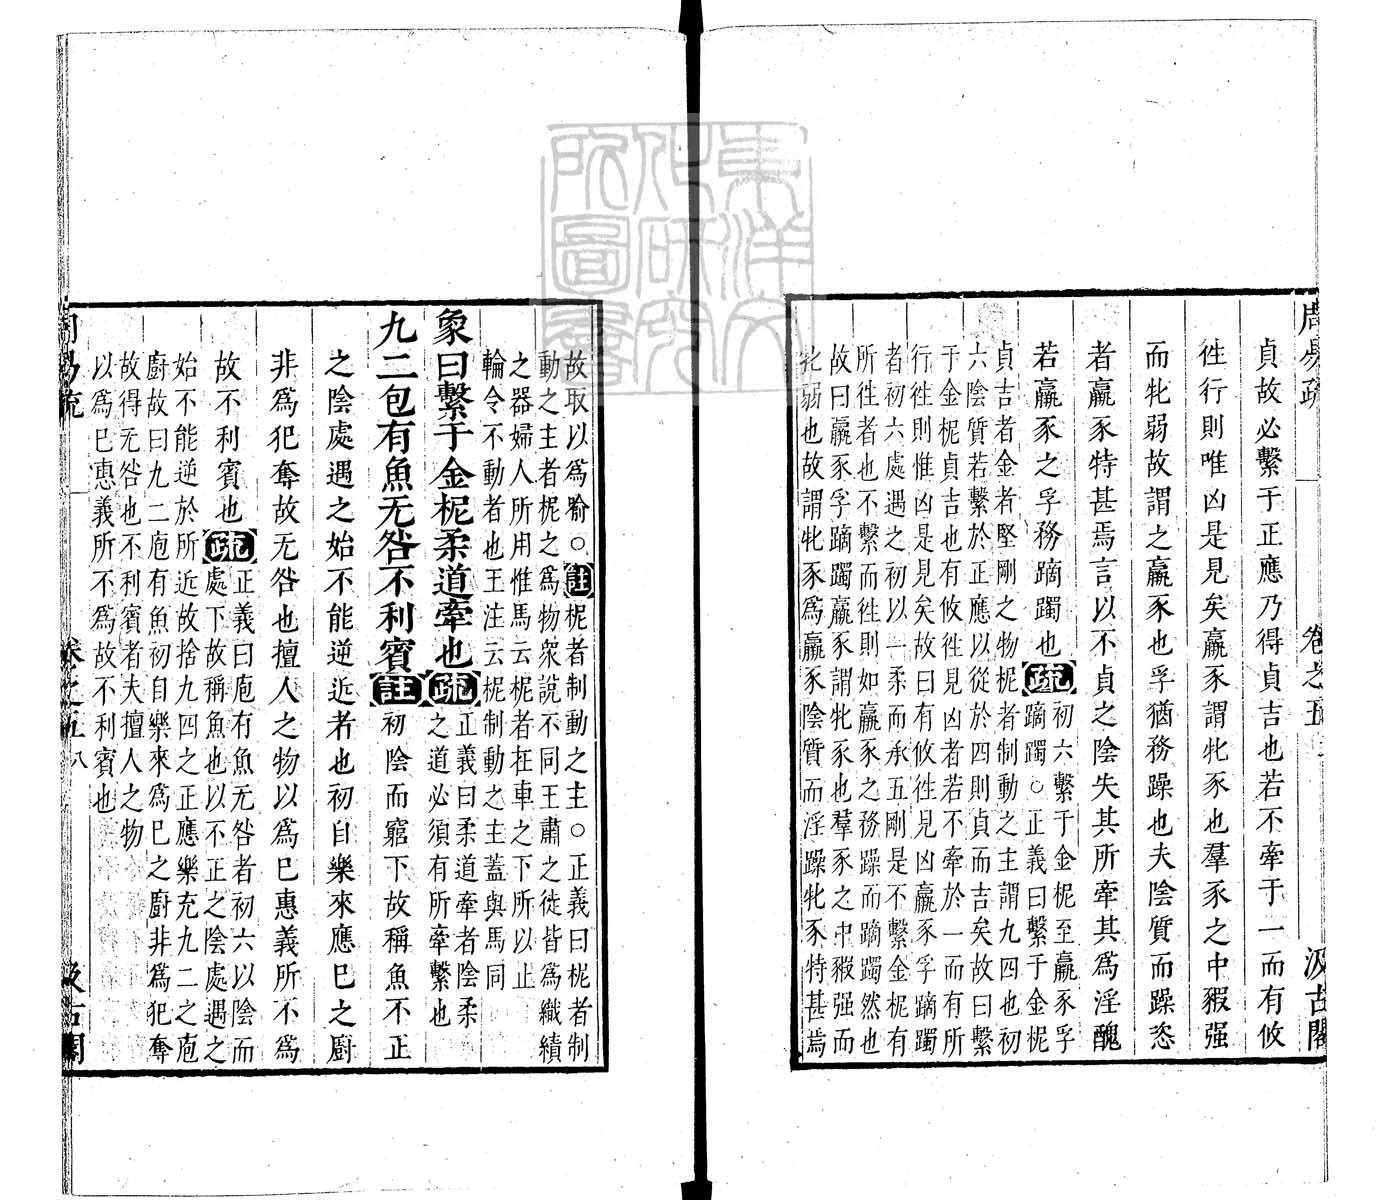 周易疏 卷之五 汲古閣
貞故必繫于正應乃得貞吉也若不牽于一而有攸
往行則唯凶是見矣羸豕謂牝豕也羣豕之中豭强
而牝弱故謂之羸豕也孚猶務躁也夫陰質而躁恣
者羸豕特甚焉言以不貞之陰失其所牽其爲淫醜
若羸豕之孚務蹢躅也疏
初六繫于金柅至羸豕孚
蹢躅○正義曰繫于金柅
貞吉者金者堅剛之物柅者制動之主謂九四也初
六陰質若繫於正應以從於四則貞而吉矣故曰繫
于金柅貞吉也有攸往見凶者若不牽於一而有所
行往則惟凶是見矣故曰有攸往見凶羸豕孚蹢躅
者初六處遇之初以一柔而承五剛是不繫金柅有
所往者也不繫而往則如羸豕之務躁而蹢躅然也
故曰羸豕孚蹢躅羸豕謂牝豕也羣豕之中豭强而
牝弱也故謂牝豕爲羸豕陰質而淫躁牝豕特甚焉
故取以爲喻○註柅者制動之主○正義曰柅者制
動之主者柅之爲物衆說不同王肅之徒皆爲織績
之器婦人所用惟馬云柅者在車之下所以止
輪令不動者也王注云柅制動之主蓋與馬同
象曰繫于金柅柔道牽也疏
正義曰柔道牽者陰柔
之道必須有所牽繫也
九二包有魚无咎不利賓註初陰而窮下故稱魚不正
之陰處遇之始不能逆近者也初自樂來應巳之廚
非爲犯奪故无咎也擅人之物以爲巳惠義所不爲
故不利賓也疏
正義曰庖有魚无咎者初六以陰而
處下故稱魚也以不正之陰處遇之
始不能逆於所近故捨九四之正應樂充九二之庖
廚故曰九二庖有魚初自樂來爲巳之廚非爲犯奪
故得无咎也不利賓者夫擅人之物
以爲巳惠義所不爲故不利賓也
周易疏 卷之五 八 汲古閣
東洋文
化研究
所圖書